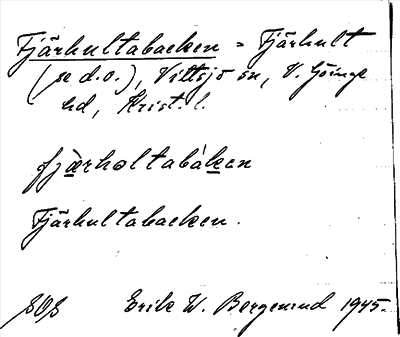 Fjärhultabacken = Fjärhult
(se d.o.), Vittsjö sn, V. Göinge
hd, Krist. l.
fjärholtabàken
Fjärhultabacken.
Erik W. Bergenrud 1945.